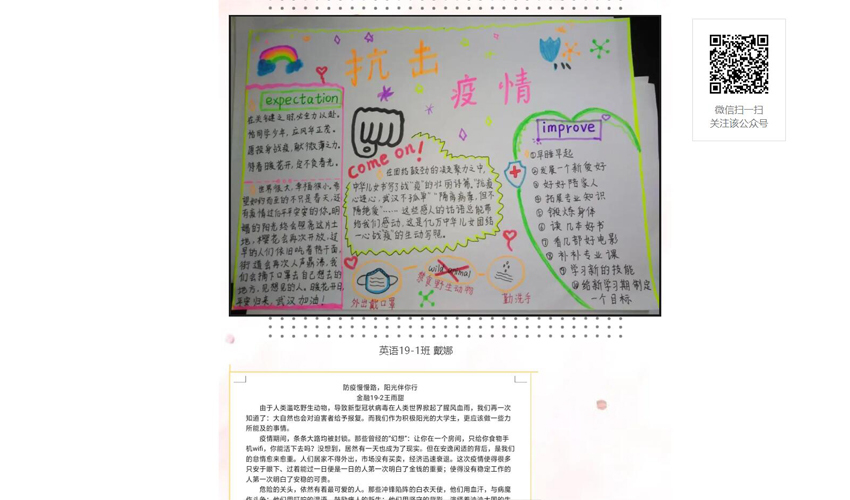 抗击
疫情
expectation
在关键之时必全力以赴。
恰同学少年，应风华正茂。
愿投身战疫，献绵薄之力。
待春暖花开，定不负春光。
世界很大，幸福很小，希
望如约而至的不只是春天，还
有疫情过后平平安安的你。明
媚的阳光终会照亮这片土
地，樱花会再次开放，过
早的人们依旧吃着热干面，
街道会再次人声鼎沸，我
们会摘下口罩去自己想去的
地方，见想见的人。暖花开日，
平安归来，武汉加油！
come on!
在团结就夺的凝聚聚力之中，
心连心，武汉不孤单
隔绝爱
这些感人的话语总能带
给我们感动，这是亿万中华儿女团结
一心战"疫"的生动写照。
外出戴口罩
wild animal
禁食野生动物
勤洗手
improve
①早睡早起
②发展一个新爱好
③好好陪家人
④拓展专业知识
⑤锻炼身体
⑥读几本好书
⑦看几部好电影
⑧补补专业课
⑨学习新的技能
⑩给新学习期制定
一个目标
微信扫一扫
关注该公众号
英语19-1班 戴娜
防疫慢慢路，阳光伴你行
金融19-2王雨甜
由于人类滥吃野生动物，导致新型冠状病毒在人类世界掀起了腥风血雨，我们再一次
知道了：大自然也会对迫害者给予报复。而我们作为积极阳光的大学生，更应该做一些力
所能及的事情。
疫情期间，条条大路均被封锁。那些曾经的"幻想"：让你在一个房间，只给你食物手
机wifi，你能活下去吗？没想到，居然有一天也成为了现实。但在安逸闲适的背后，是我们
的悲情愈来愈重。人们居家不得外出，市场没有买卖，经济迅速衰退。这次疫情使得很多
只安于眼下、过着能过一日便是一日的人第一次明白了金钱的重要；使得没有稳定工作的
人第一次明白了安稳的可贵。
危险的关头，依然有着最可爱的人。那些冲锋陷阵的白衣天使，他们用血汗，与病魔